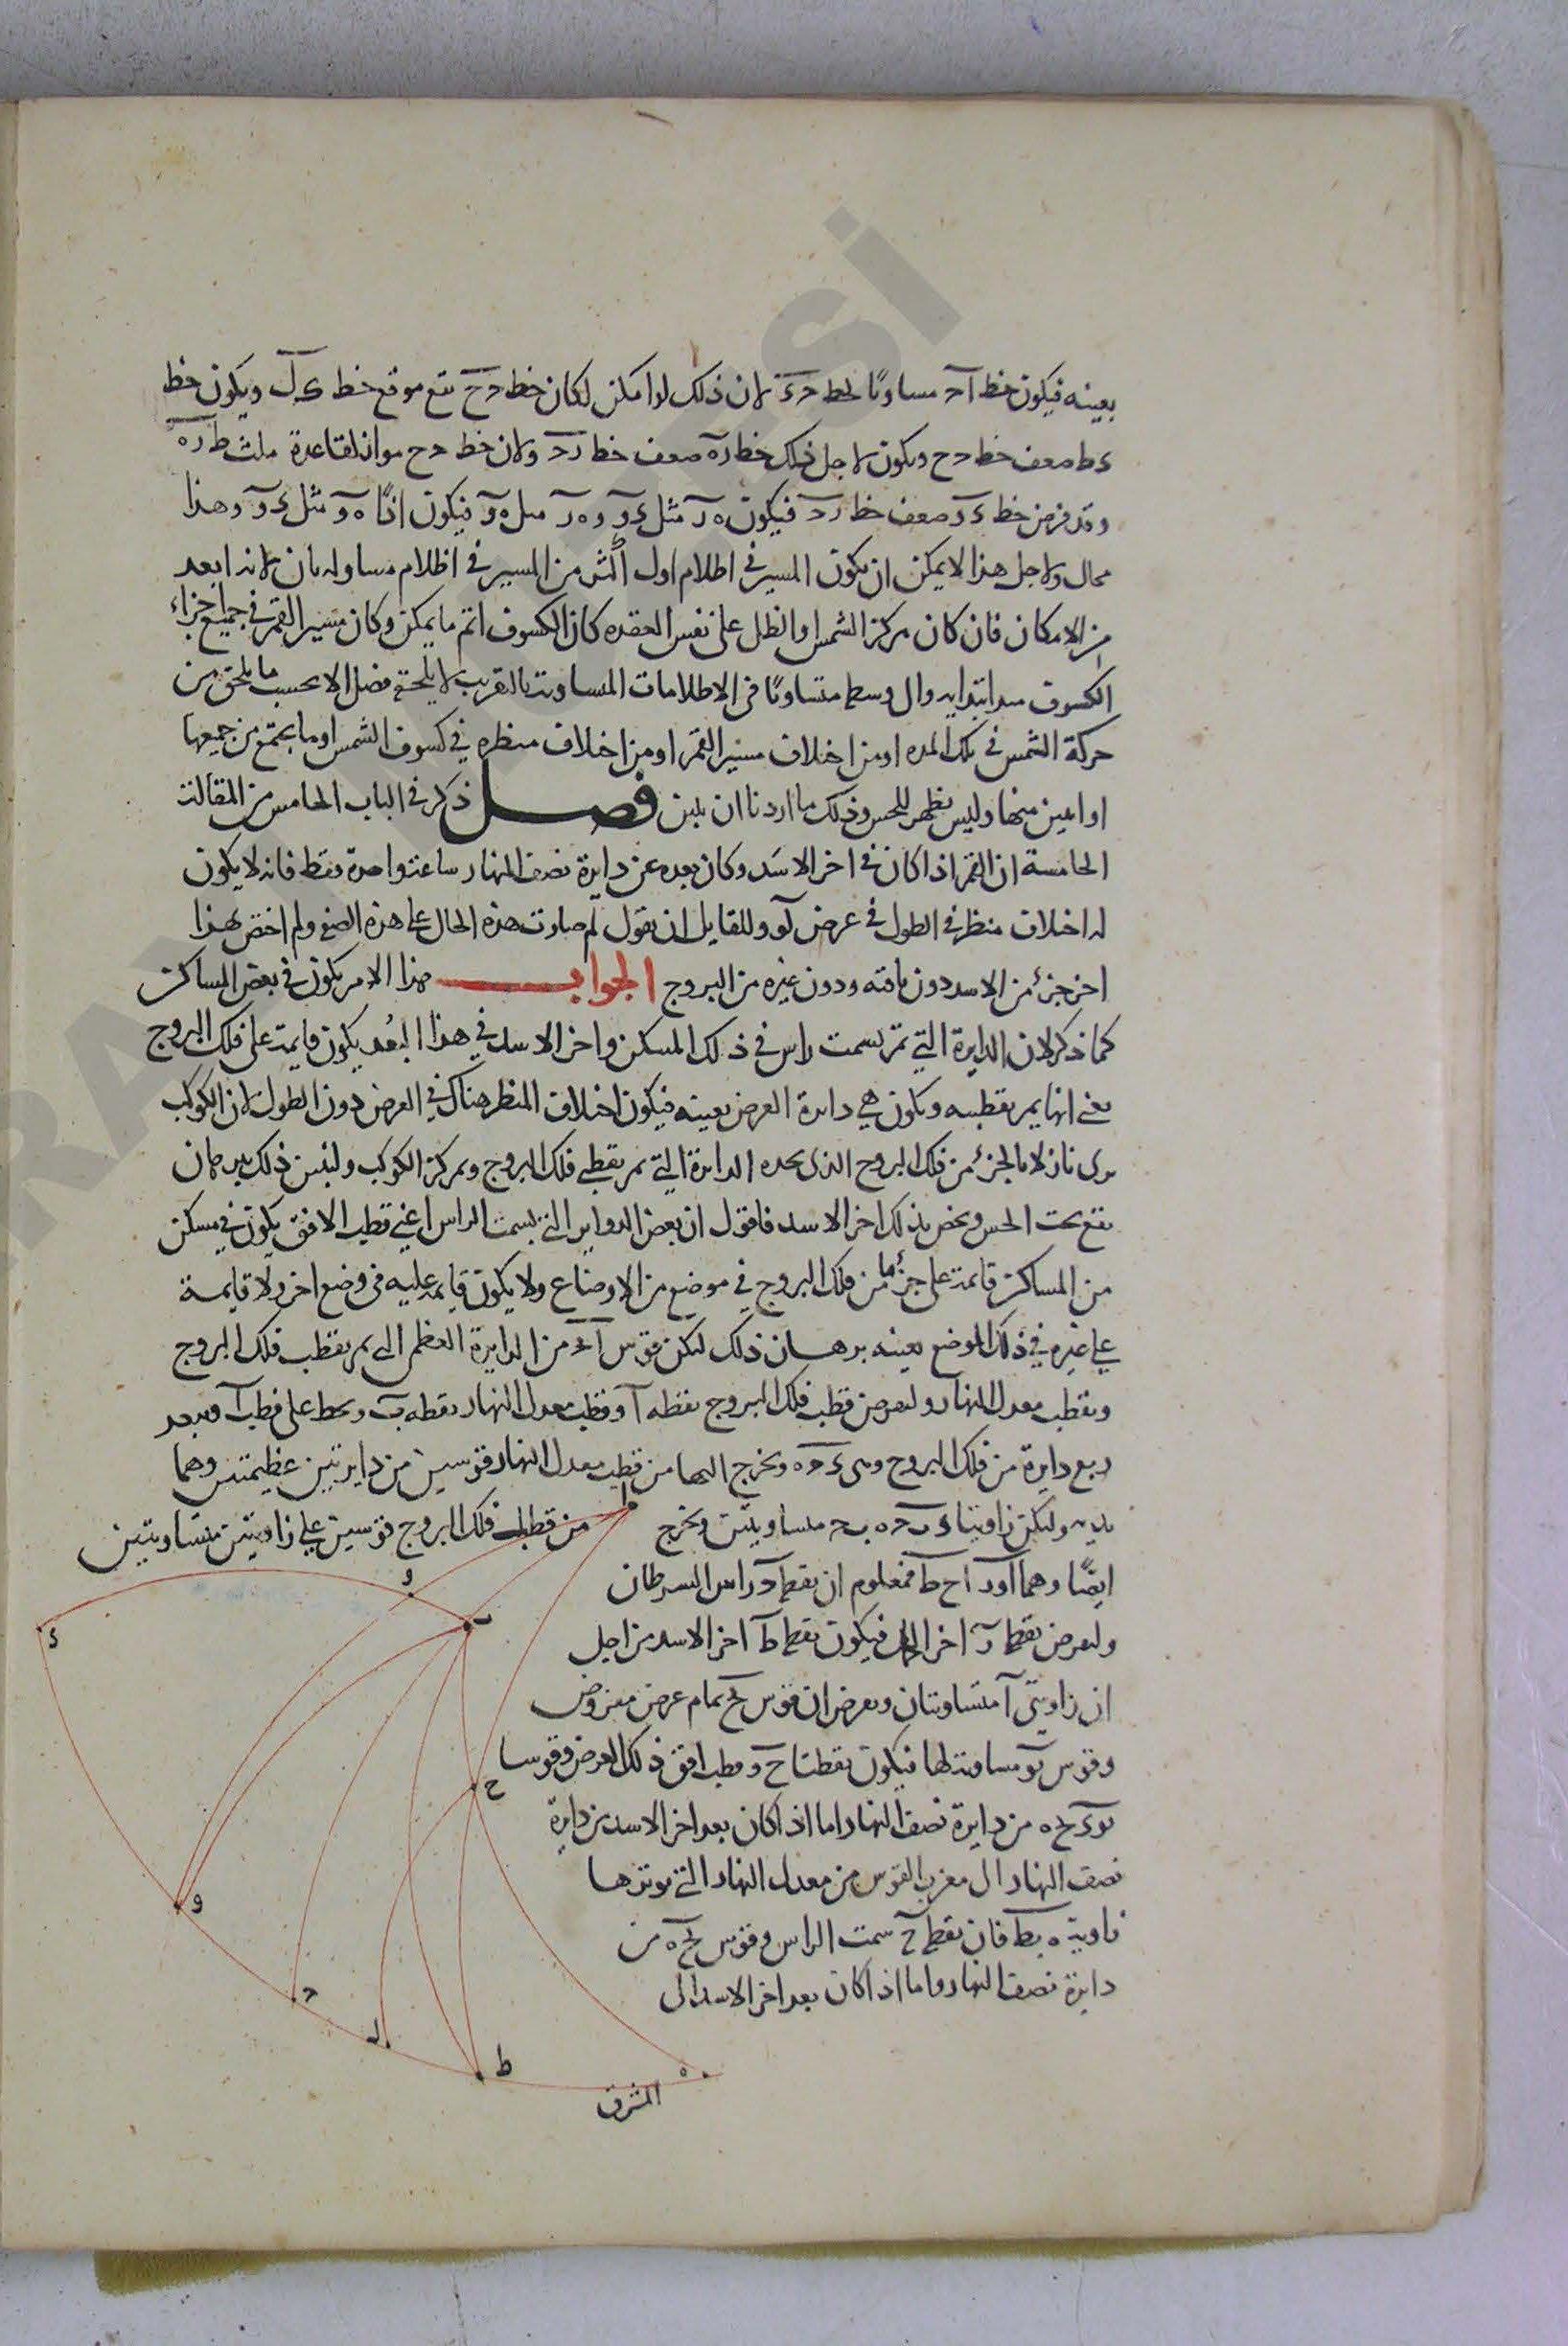 بعينه فيكون خط آح مساويًا لخط حءَ لان ذلك لو امكن لكان خط حح يقع موقع خط كل ويكون خط
ءط ضعف خط حح ويكون لاجل ذلك خط رَه ضعف خط رح ولان خط حح مواز لقاعدة مثلث طره
وقد فرض خط ءر ضعف خط رح فيكون ه ر مثل ءو وه ر مثل ه و فيكون اذًا ه و مثل ءو وهذا
محال ولاجل هذا لا يمكن ان يكون المسير في اظلام اول اكثر من المسير في اظلام مساو له ثان لانه ابعد
من الامكان فان كان مركز الشمس او الظل على نفس العقده كان الكسوف اتم ما يمكن وكان مسير القمر في جميع اجزاء
الكسوف من ابتدايه وال وسطه متساويًا في الاظلامات المتساويه بالقريب لا يلحقه فضل الا بحسب ما يلحق من
حركة الشمس في تلك المده او من اختلاف مسير القمر او من اختلاف منظره في كسوف الشمس او ما يجتمع من جميعها
او اثنين منها وليس يظهر للحس وذلك ما اردنا ان نبين فصل ذكر في الباب الخامس من المقالة
الخامسة ان القمر اذا كان في اخر الاسد وكان بعده عن دايرة نصف النهار ساعة واحدة فقط فانه لا يكون
له اختلاف منظر في الطول في عرض لَو وللقايل ان يقول لم صارت هذه الحال على هذه الصفه ولم اختص بهذا
اخر جزء من الاسد دون باقيه ودون غيره من البروج الجواب هذا الامر يكون في بعض المساكن
كما ذكر لان الدايرة التي تمر بسمت راس في ذلك المسكن واخر الاسد في هذا البُعد يكون قايمة على فلك البروج
يعني انها يمر بقطبيه ويكون هي دايرة العرض بعينه فيكون اختلاف المنظر هناك في العرض دون الطول لان الكوكب
يرى نازلا بالجزء من فلك البروج الذي يحده الدايرة التي تمر بقطبي فلك البروج وبمركز الكوكب ولنبين ذلك ببرهان
يقع تحت الحس ونخص بذلك اخر الاسد فاقول ان بعض الدواير التي بسمت الراس اعني قطب الافق يكون في مسكن
من المساكن قايمة على جزء ما من فلك البروج في موضع من الاوضاع ولا يكون قايمة عليه في وضع اخر ولا قايمة
على غيره في ذلك الموضع بعينه برهان ذلك لتكن قوس آح من الدايرة العظمى التي يمر بقطب فلك البروج
وبقطب معدل النهار ولنفرض قطب فلك البروج نقطه آ وقطب معدل النهار نقطه ب ونخط على قطب آ وببعد
ربع دايرة من فلك البروج وهي ءحه ونخرج اليها من قطب معدل النهار قوسين من دايرتين عظيمتين وهما
بء به ولتكن زاويتا ءبح ه بح متساويتين ونخرج من قطب فلك البروج قوسين على زاويتين متساويتين
ايضًا وهما آور آح ط فمعلوم ان نقطة ح راس السرطان
ولنفرض نقطة ر اخر الحمل فيكون نقطة ط اخر الاسد من اجل
ان زاويتي آ متساويتان ونفرض ان قوس بح تمام عرض مفروض
وقوس بو مساوية لها فيكون نقطتا ح و قطب افق ذلك العرض وقوسا
بوء بحه من دايرة نصف النهار اما اذا كان بعد اخر الاسد من دايرة
نصف النهار ال مغرب القوس من معدل النهار التي توترها
زاوية ه بط فان نقطة ح سمت الراس وقوس بحه من
دايرة نصف النهار واما اذا كان بعد اخر الاسد ال
ا
و
ب
ء
ح
و
ح
ل
ط
ه
المشرق